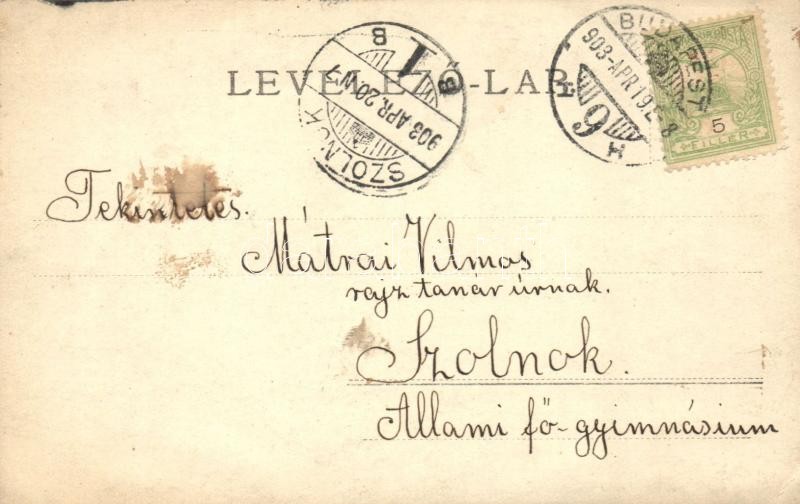 LEVELEZŐ-LAP
SZOLNOK
903 APR. 20. N 7
1
B
B
BUDAPEST
903-APR 19
6
5
FILLER
Tekintetes.
Mátrai Vilmos
rajz tanár úrnak.
Szolnok.
Allami fő-gyimnásium